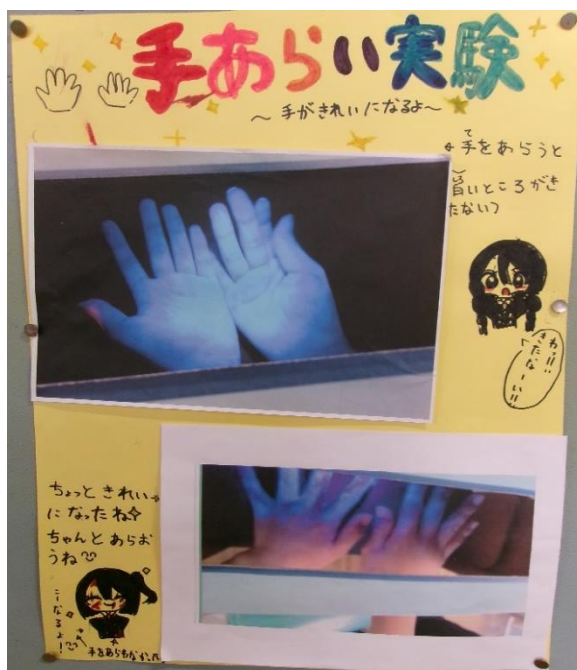 手あらい実験
～手がきれいになるよ～
て
手をあらうと
いところがき
たない
わっ!!!
きたなーい!!
ちょっときれい
になったね
ちゃんとあらお
うね
こーなるよ!
手をあらわなかった